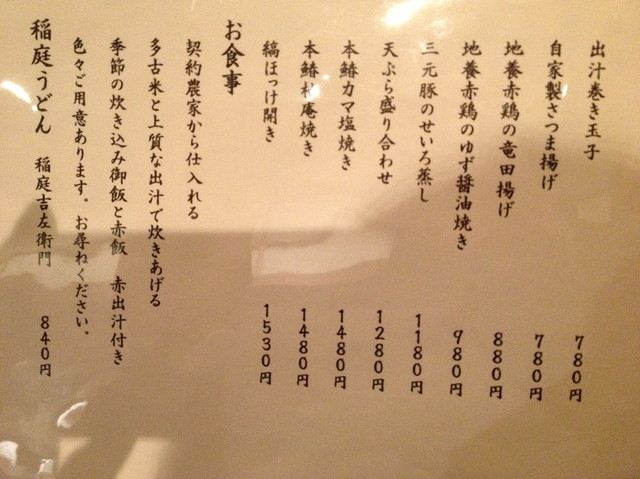 出汁巻き玉子　780円
自家製さつま揚げ　780円
地養赤鶏の竜田揚げ　880円
地養赤鶏のゆず醤油焼き　980円
三元豚のせいろ蒸し　1180円
天ぷら盛り合わせ　1280円
本鰆カマ塩焼き　1480円
本鰆杉庵焼き　1480円
縞ほっけ開き　1530円
お食事
契約農家から仕入れる
多古米と上質な出汁で炊きあげる
季節の炊き込み御飯と赤飯　赤出汁付き
色々ご用意あります。お尋ねください。
稲庭うどん　稲庭吉左衛門　840円